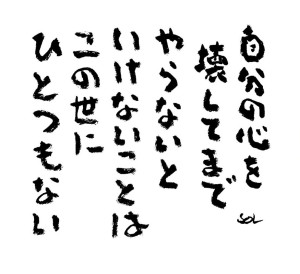 自分の心を
壊してまで
やらないと
いけないことは
この世に
ひとつもない
SOL